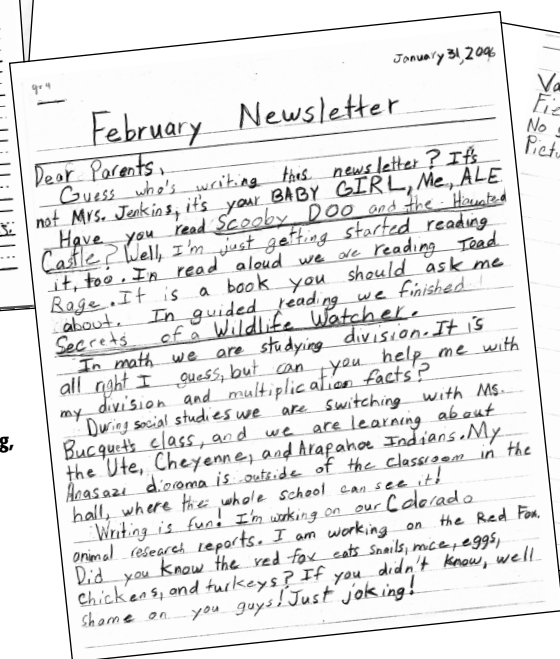 January 31, 2006
gr 4
February Newsletter
Dear Parents,
Guess who's writing this newsletter? It's
not Mrs. Jenkins, it's your BABY GIRL, Me, ALE
Have you read Scooby DOO and the Haunted
Castle? Well, I'm just getting started reading
it, too. In read aloud we are reading Toad
Rage. It is a book you should ask me
about. In guided reading we finished
Secrets of a Wildlife Watcher.
In math we are studying division. It is
all right I guess, but can you help me with
my division and multiplication facts?
During social studies we are switching with Ms.
Bucquet's class, and we are learning about
the Ute, Cheyenne, and Arapahoe Indians. My
Anasazi diorama is outside of the classroom in the
hall, where the whole school can see it!
Writing is fun! I'm working on our Colorado
animal research reports. I am working on the Red Fox.
Did you know the red fox eats snails, mice, eggs,
chickens, and turkeys? If you didn't know, well
shame on you guys! Just joking!
No
g,